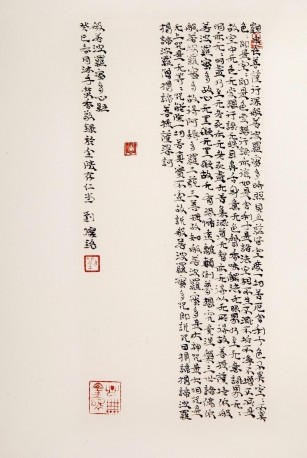 觀自在菩薩行深般若波羅蜜多時照見五蘊皆空度一切苦厄舍利子色不異空空不異
色色即是空空即是色受想行識亦復如是舍利子是諸法空相不生不滅不垢不淨不增不減是
故空中无色无受想行識无眼耳鼻舌身意无色聲香味觸法无眼界乃至无意識界无无
明亦无无明盡乃至无老死亦无老死盡无苦集滅道无智亦无得以无所得故菩提薩埵依般
若波羅蜜多故心无罣礙无罣礙故无有恐怖遠離顛倒夢想究竟涅槃三世諸佛依
般若波羅蜜多故得阿耨多羅三藐三菩提故知般若波羅蜜多是大神咒是大明咒是
无上咒是无等等咒能除一切苦真實不虛故說般若波羅蜜多咒即說咒曰揭諦揭諦波羅
揭諦波羅僧揭諦菩提薩婆訶
般若波羅蜜多心經
癸巳